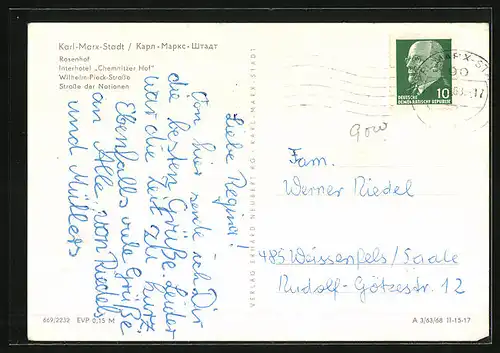 Karl-Marx-Stadt / Карл-Маркс-Штадт
Rosenhof
Interhotel „Chemnitzer Hof"
Wilhelm-Pieck-Straße
Straße der Nationen
Liebe Regina!
Von hier sende ich Dir
die besten Grüße. Leider
war die Zeit zu kurz.
Ebenfalls viele Grüße
an Alle, von Riedels
und Müllers
669/2232 EVP 0,15 M
VERLAG ERHARD NEUBERT KG · KARL-MARX-STADT
MARX-ST
90
-17
DEUTSCHE
DEMOKRATISCHE REPUBLIK
10
Fam.
Werner Riedel
485 Weissenfels/Saale
Rudolf-Götzestr. 12
A 3/63/68 11-15-17